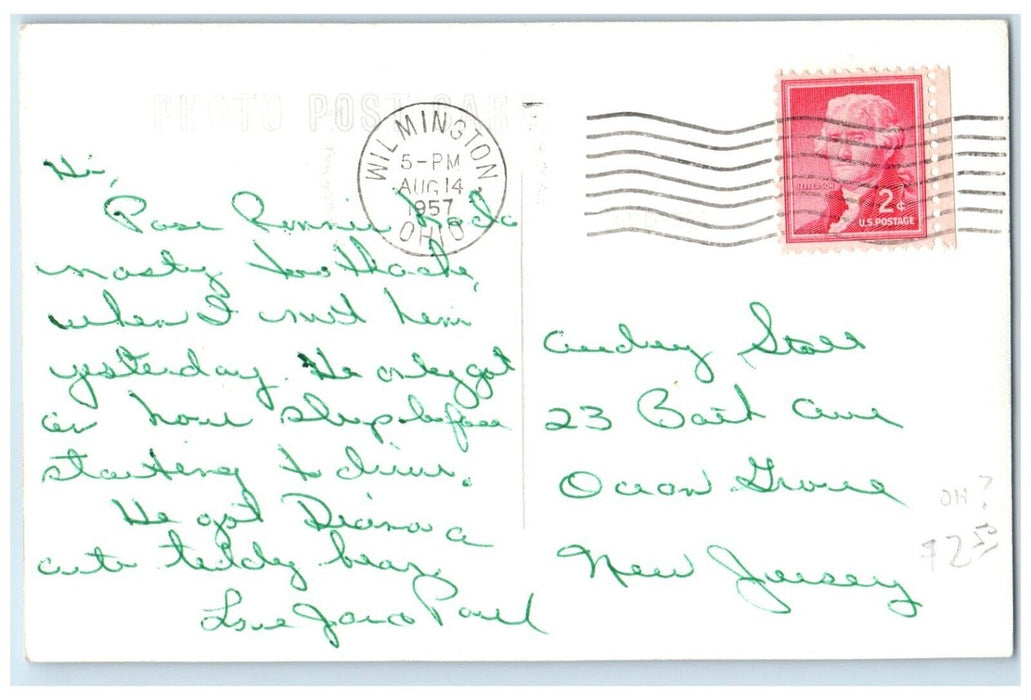 PHOTO POST CARD
WILMINGTON,
5-PM
AUG 14
1957
OHIO
JEFFERSON
2¢
U.S. POSTAGE
Hi,
Poor Ronnie had a
nasty toothache,
when I met him
yesterday. He only got
an hour sleep before
starting to drive.
He got Diana a
cute teddy bear.
Love Paul
Audrey
23 Bath Ave
Ocean Grove
New Jersey
OH?
$2.50